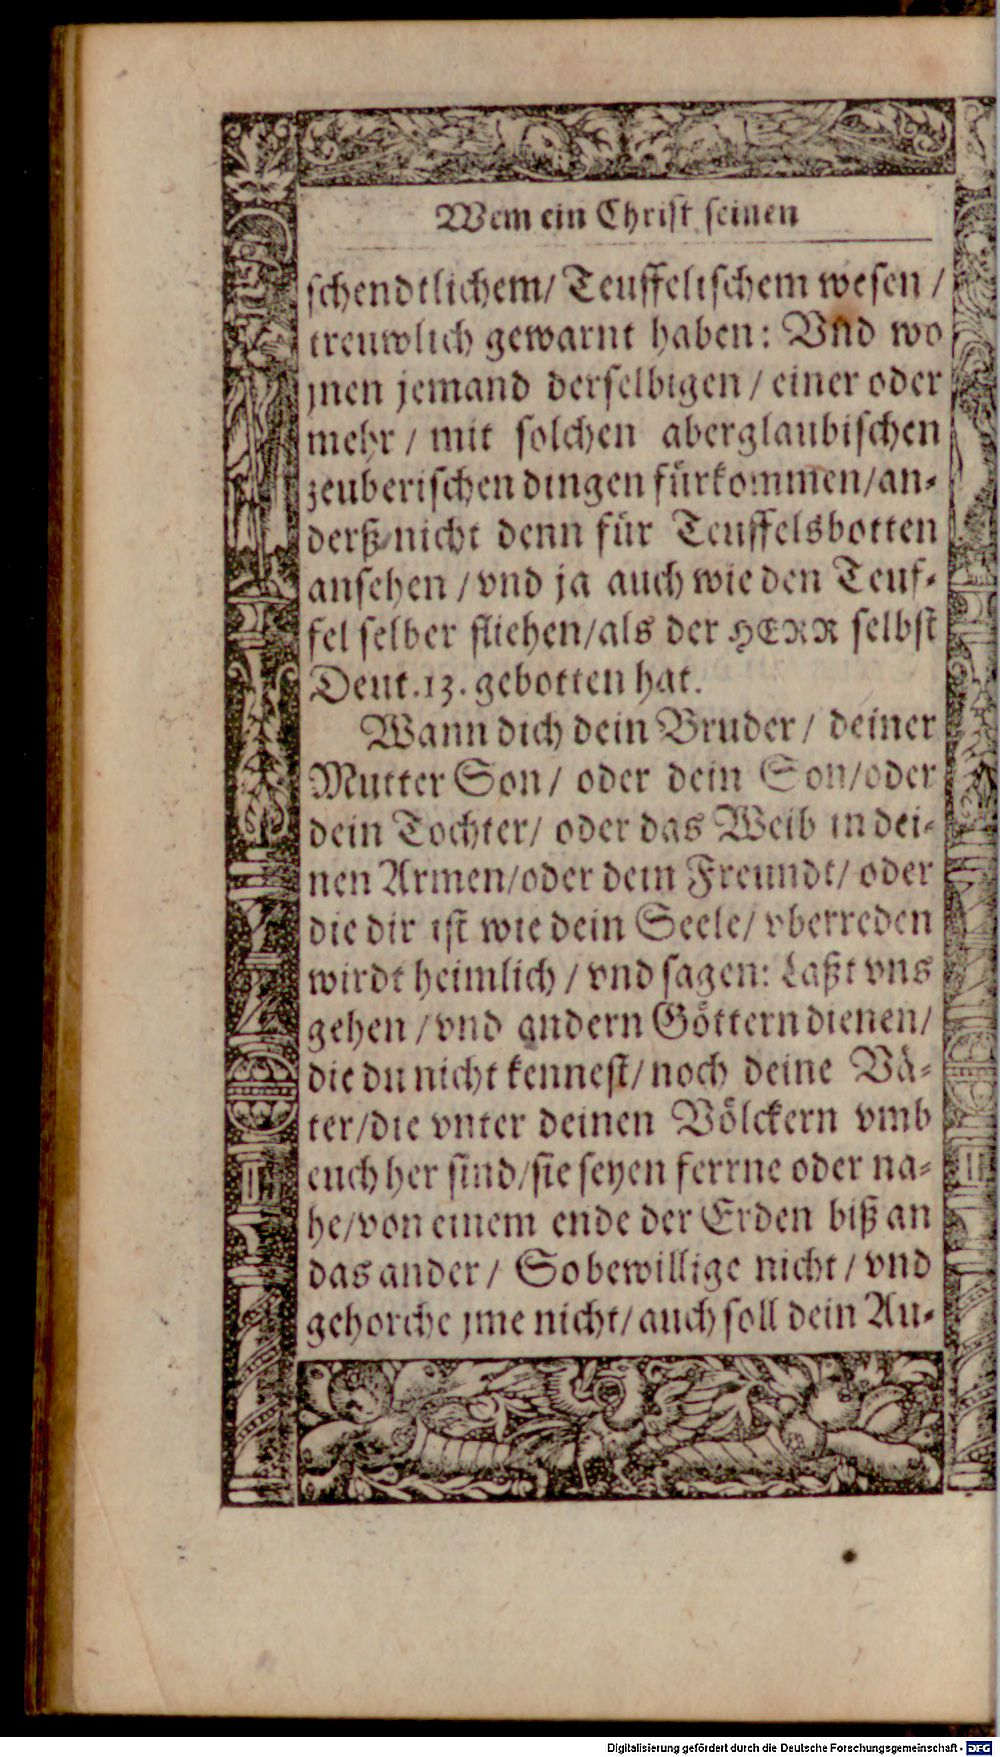 Wem ein Christ seinen
schendtlichem/ Teuffelischem wesen /
treuwlich gewarnt haben: Vnd wo
jnen jemand derselbigen / einer oder
mehr / mit solchen aberglaubischen
zeuberischen dingen fürkommen/an-
derß nicht denn für Teuffelsbotten
ansehen / vnd ja auch wie den Teuf-
fel selber fliehen/als der HERR selbst
Deut.13. gebotten hat.
Wann dich dein Bruder / deiner
Mutter Son/ oder dein Son/oder
dein Tochter/ oder das Weib in dei-
nen Armen/oder dein Freundt/ oder
die dir ist wie dein Seele/ vberreden
wirdt heimlich / vnd sagen: Laßt vns
gehen / vnd andern Göttern dienen/
die du nicht kennest/ noch deine Vä-
ter/die vnter deinen Völckern vmb
euch her sind/sie seyen ferrne oder na-
he/von einem ende der Erden biß an
das ander/ So bewillige nicht / vnd
gehorche jme nicht/ auch soll dein Au-
Digitalisierung gefördert durch die Deutsche Forschungsgemeinschaft - DFG